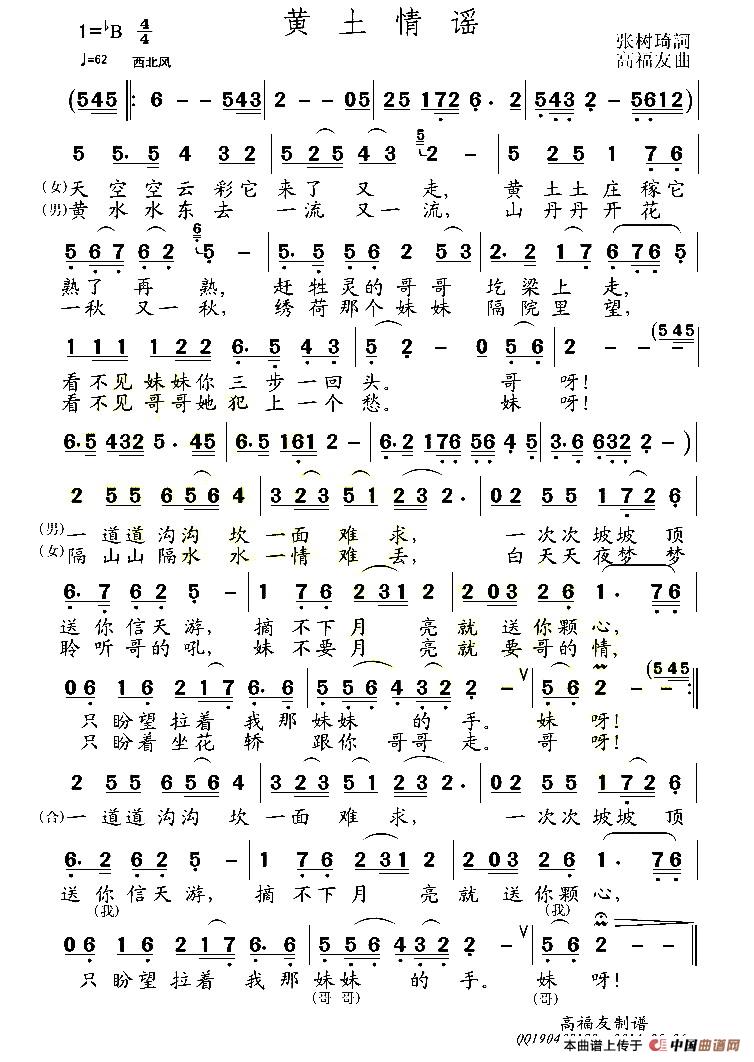 黄土情谣
1=♭B 4/4
♩=62 西北风
张树琦詞
高福友曲
(545 ‖: 6 - - 543 | 2 - - 05 | 25 172 6. 2 | 543 2 - 5612) |
5 5. 5 4 3 2 | 5 25 43 5 2 - | 5 25 1 76 |
(女)天空空云彩它来了又走,黄土土庄稼它
(男)黄水水东去一流又一流,山丹丹开花
5 67 62 6 5 - | 5. 5 56 2 53 | 2. 2 17 6765 |
熟了再熟,赶牲灵的哥哥圪梁上走,
一秋又一秋,绣荷那个妹妹隔院里望,
1 11 122 6. 5 43 | 5 2 - 0 56 | 2 - - (545
看不见妹妹你三步一回头。哥呀!
看不见哥哥她犯上一个愁。妹呀!
6.5 432 5. 45 | 6.5 161 2 - | 6.2 176 56 45 | 3.6 632 2 - ) |
2 55 656 4 | 323 51 232. | 02 55 172 6 |
(男)一道道沟沟坎一面难求,一次次坡坡顶
(女)隔山山隔水水一情难丢,白天天夜梦梦
6. 7 62 5 - | 1 76 2312 | 203 26 1. 76 |
送你信天游,摘不下月亮就送你颗心,
聆听哥的吼,妹不要月亮就要哥的情,
06 16 217 6. 6 | 5 56 432 2 - ∨ | 56 2 - - (545 :‖
只盼望拉着我那妹妹的手。妹呀!
只盼着坐花轿跟你哥哥走。哥呀!
2 55 656 4 | 323 51 232. | 02 55 172 6 |
(合)一道道沟沟坎一面难求,一次次坡坡顶
6. 2 62 5 - | 1 76 2312 | 203 26 1. 76 |
送你信天游,摘不下月亮就送你颗心,
(我) (我)
06 16 217 6. 6 | 5 56 432 2 - ∨ | 56 2 - - ‖
只盼望拉着我那妹妹的手。妹呀!
(哥哥) (哥)
高福友制谱
本曲谱上传于 中国曲谱网